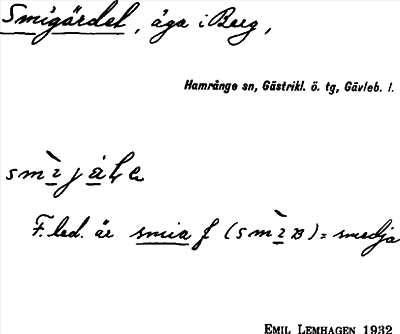 Smigärdet, äga i Berg,
Hamrånge sn, Gästrikl. ö. tg, Gävleb. l.
F. led. är smia f (smìʙ) = smedja
EMIL LEMHAGEN 1932